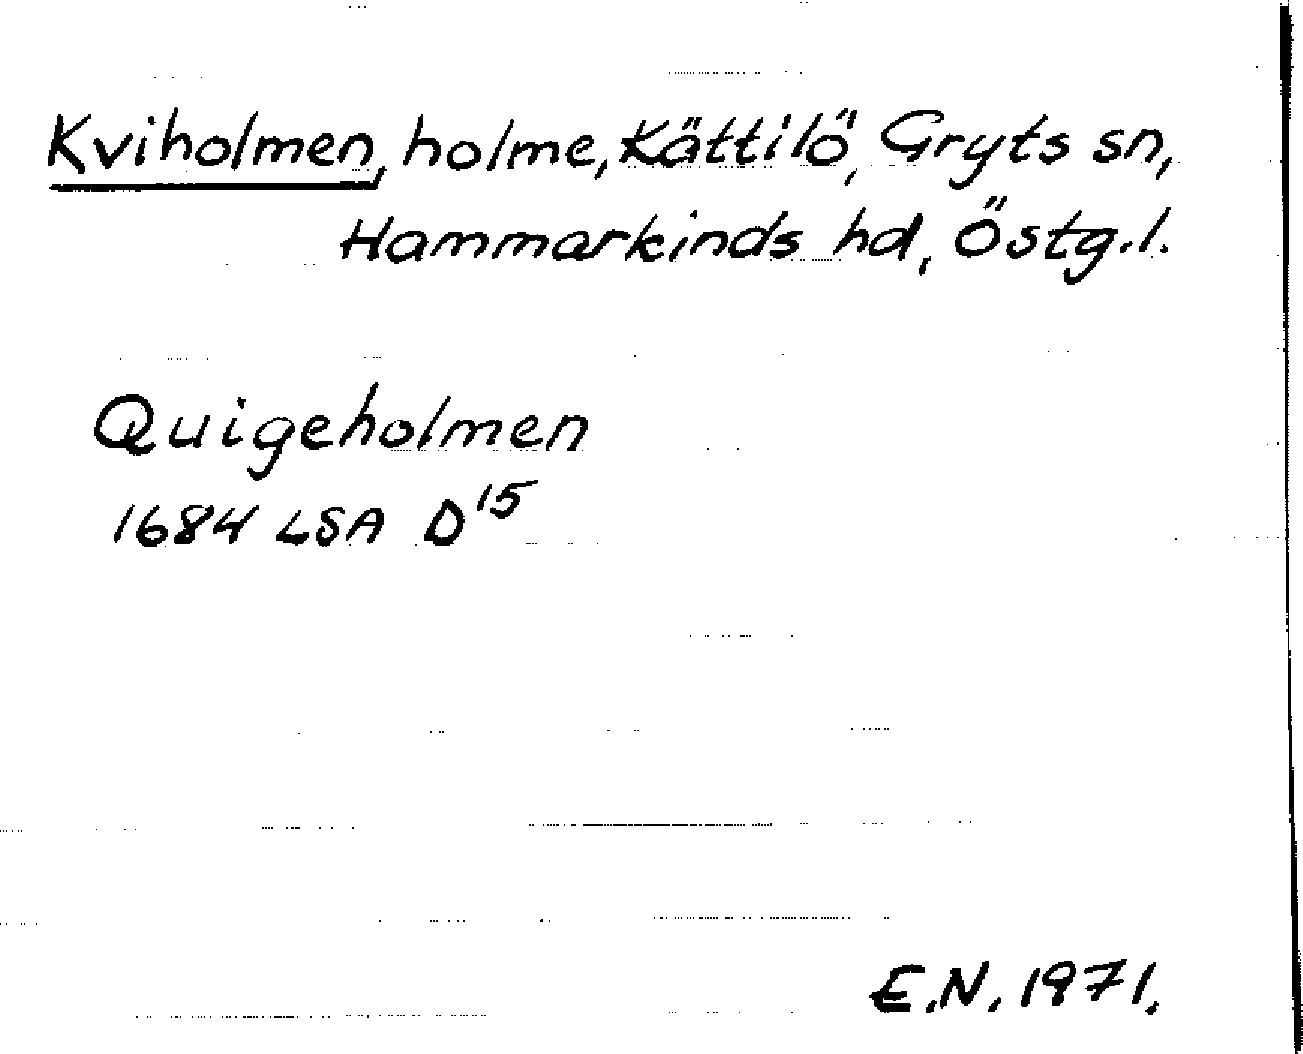 Kviholmen, holme, Kättilö, Gryts sn,
Hammarkinds hd, Östg.l.
Quigeholmen
1684 LSA D15
E.N. 1971.